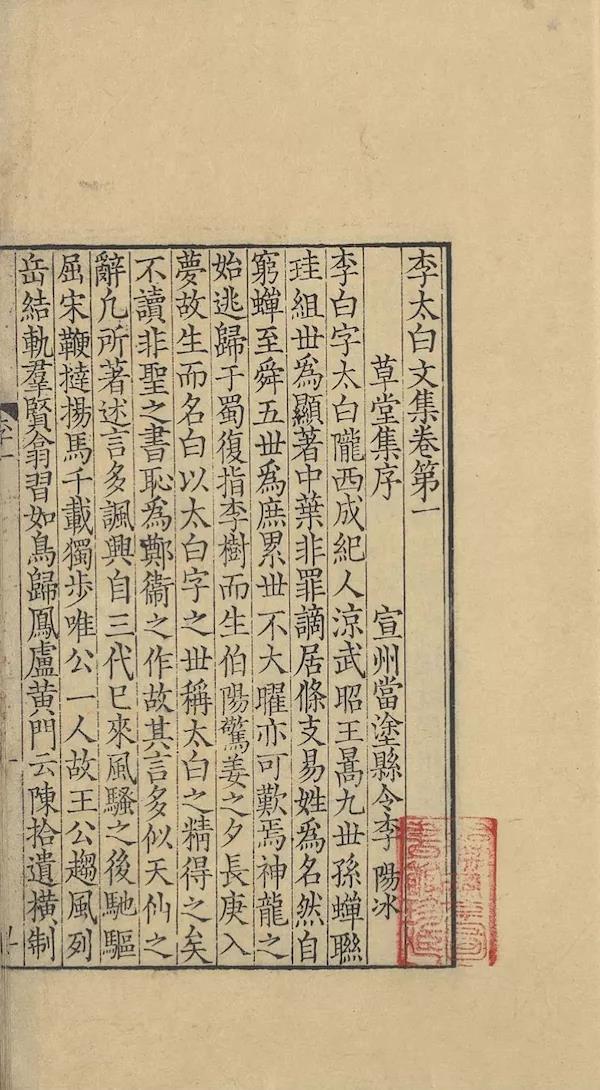 李太白文集卷第一
草堂集序 宣州當塗縣令李 陽冰
李白字太白隴西成紀人涼武昭王暠九丗孫蟬聯
珪組丗爲顯著中葉非罪謫居條支易姓爲名然自
窮蟬至舜五丗爲庶累丗不大曜亦可歎焉神龍之
始逃歸于蜀復指李樹而生伯陽驚姜之夕長庚入
夢故生而名白以太白字之丗稱太白之精得之矣
不讀非聖之書恥爲鄭衞之作故其言多似天仙之
辭凢所著述言多諷興自三代已來風騷之後馳驅
屈宋鞭撻揚馬千載獨步唯公一人故王公趨風列
岳結軌羣賢翕習如鳥歸鳳盧黃門云陳拾遺橫制